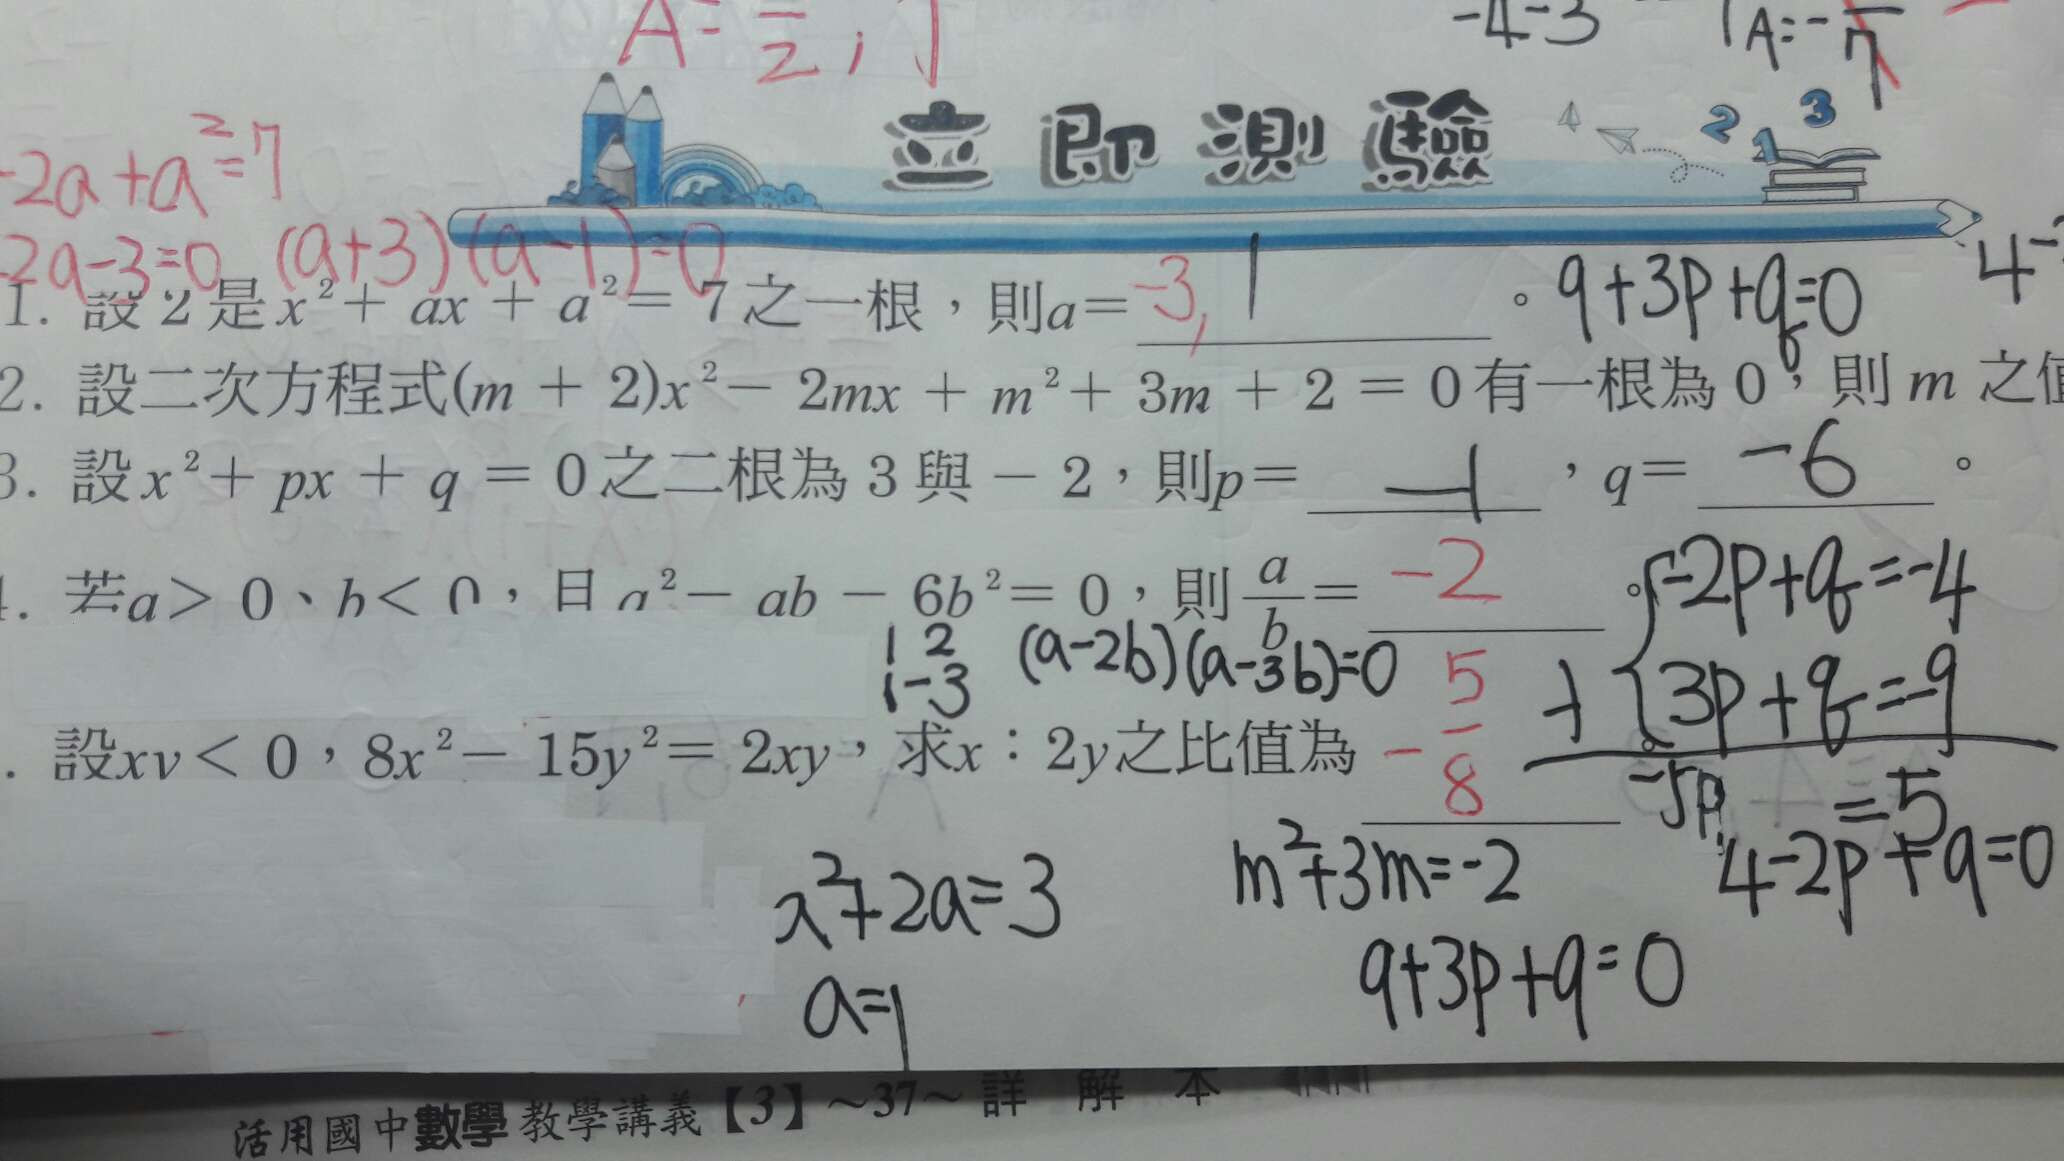 -4-3
A=-
-2a+a²=7
立即測驗
2 1 3
-2a-3=0 (a+3)(a-1)=0
1. 設 2 是 x²+ ax + a²= 7 之一根，則a= -3, 1 。 9+3p+q=0
2. 設二次方程式(m + 2)x²- 2mx + m²+ 3m + 2 = 0 有一根為 0，則 m 之值
3. 設 x²+ px + q = 0 之二根為 3 與 - 2，則p= -1 ，q= -6 。
若a> 0、b< 0，且 a²- ab - 6b²= 0，則 a/b = -2 。
-2p+q=-4
1 2
1-3
(a-2b)(a-3b)=0
3p+q=-9
設xy< 0，8x²- 15y²= 2xy，求x：2y之比值為 -5/8 。
-5p =5
x²+2a=3
m²+3m=-2
4-2p+q=0
a=1
9+3p+q=0
活用國中數學教學講義【3】~37~ 詳 解 本